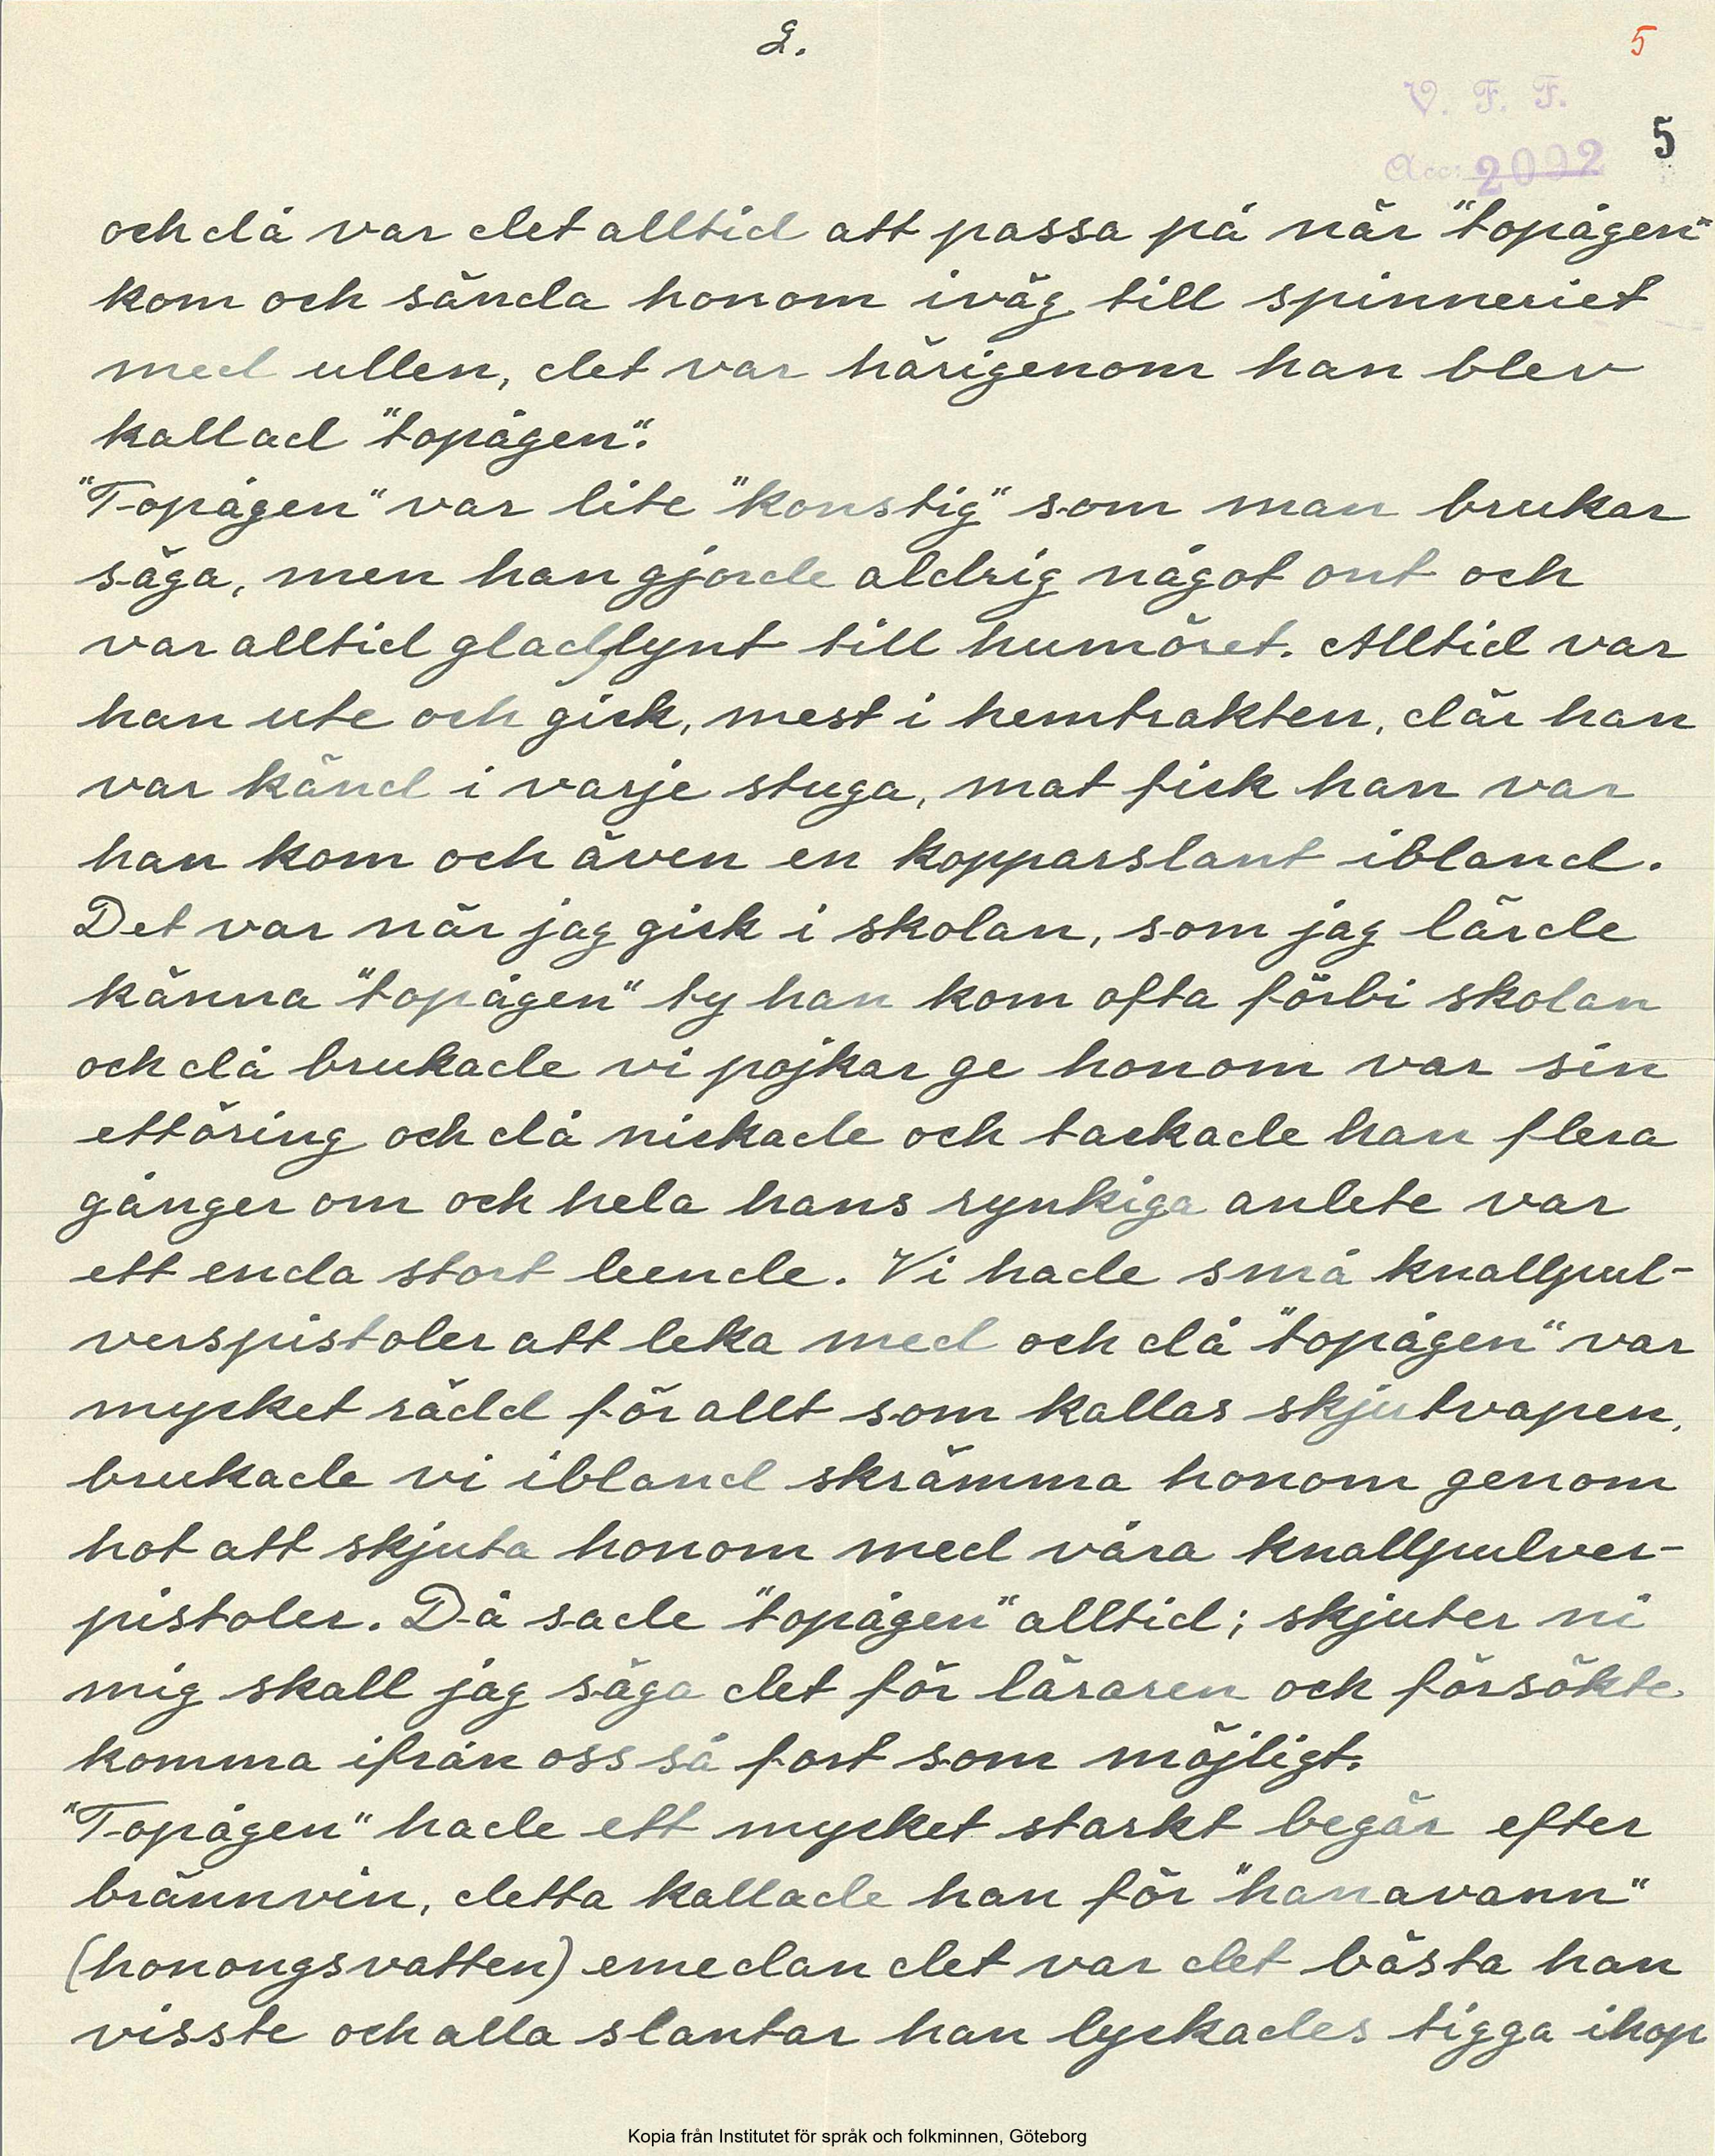 2.
5
V. F. F.
5
Acc: 2092
och då var det alltid att passa på när "topågen"
kom och sända honom iväg till spinneriet
med ullen, det var härigenom han blev
kallad "topågen".
"Topågen" var lite "konstig" som man brukar
säga, men han gjorde aldrig något ont och
var alltid gladlynt till humöret. Alltid var
han ute och gick, mest i hemtrakten, där han
var känd i varje stuga, mat fick han var
han kom och även en kopparslant ibland.
Det var när jag gick i skolan, som jag lärde
känna "topågen" ty han kom ofta förbi skolan
och då brukade vi pojkar ge honom var sin
ettöring och då nickade och tackade han flera
gånger om och hela hans rynkiga anlete var
ett enda stort leende. Vi hade små knallpul-
verspistoler att leka med och då "topågen" var
mycket rädd för allt som kallas skjutvapen,
brukade vi ibland skrämma honom genom
hot att skjuta honom med våra knallpulver-
pistoler. Då sade "topågen" alltid; skjuter ni
mig skall jag säga det för läraren och försökte
komma ifrån oss så fort som möjligt.
"Topågen" hade ett mycket starkt begär efter
brännvin, detta kallade han för "hanavann"
(honongsvatten) emedan det var det bästa han
visste och alla slantar han lyckades tigga ihop
Kopia från Institutet för språk och folkminnen, Göteborg